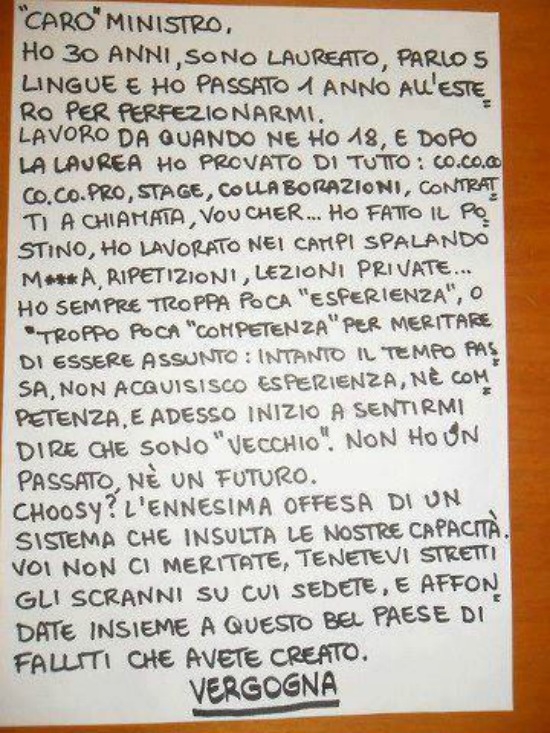 "CARO" MINISTRO,
HO 30 ANNI, SONO LAUREATO, PARLO 5
LINGUE E HO PASSATO 1 ANNO ALL'ESTE=
RO PER PERFEZIONARMI.
LAVORO DA QUANDO NE HO 18, E DOPO
LA LAUREA HO PROVATO DI TUTTO: CO.CO.CO
CO.CO.PRO, STAGE, COLLABORAZIONI, CONTRAT=
TI A CHIAMATA, VOUCHER... HO FATTO IL PO=
STINO, HO LAVORATO NEI CAMPI SPALANDO
M***A, RIPETIZIONI, LEZIONI PRIVATE...
HO SEMPRE TROPPA POCA "ESPERIENZA", O
"TROPPO POCA "COMPETENZA" PER MERITARE
DI ESSERE ASSUNTO: INTANTO IL TEMPO PAS=
SA, NON ACQUISISCO ESPERIENZA, NÈ COM=
PETENZA, E ADESSO INIZIO A SENTIRMI
DIRE CHE SONO "VECCHIO". NON HO UN
PASSATO, NÈ UN FUTURO.
CHOOSY? L'ENNESIMA OFFESA DI UN
SISTEMA CHE INSULTA LE NOSTRE CAPACITÀ.
VOI NON CI MERITATE, TENETEVI STRETTI
GLI SCRANNI SU CUI SEDETE, E AFFON=
DATE INSIEME A QUESTO BEL PAESE DI
FALLITI CHE AVETE CREATO.
VERGOGNA